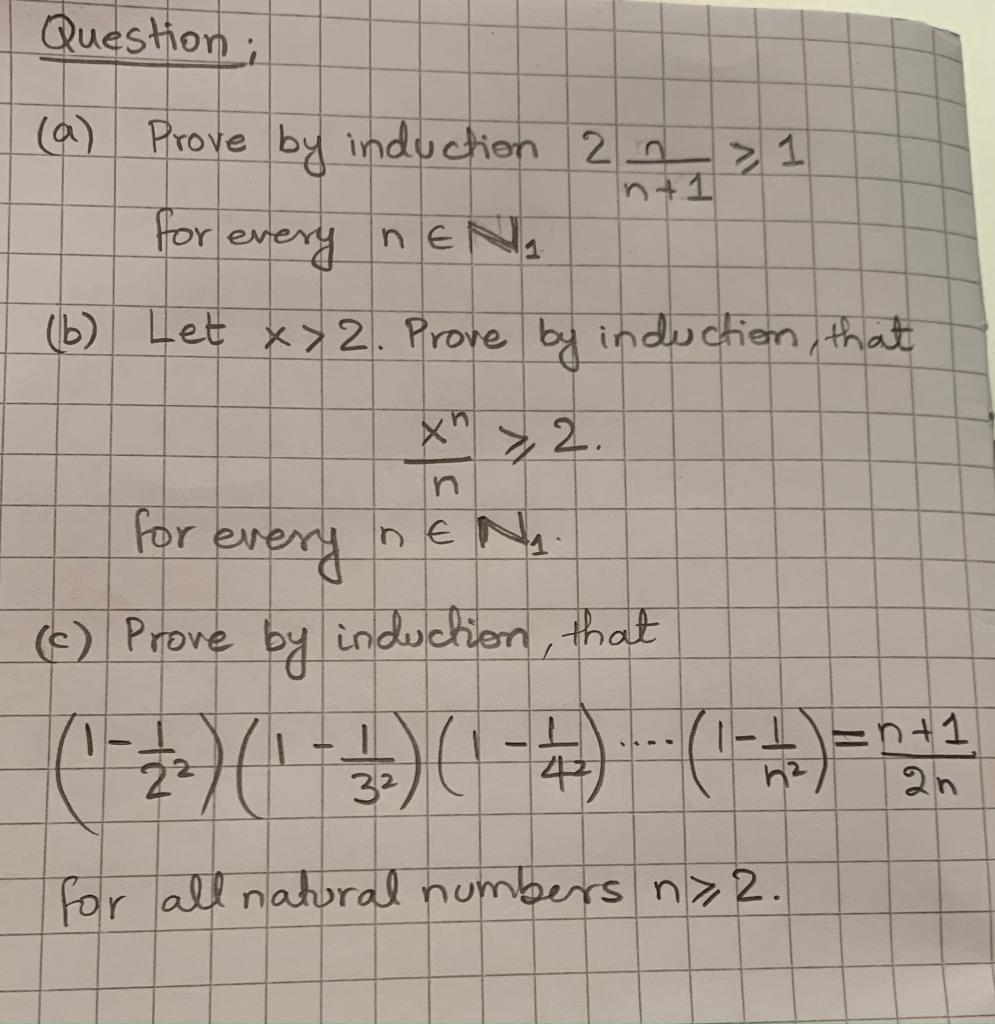 Question;
(a) Prove by induction 2 n/(n+1) ⩾ 1
for every n ∈ ℕ₁
(b) Let x > 2. Prove by induction, that
xⁿ/n ⩾ 2.
for every n ∈ ℕ₁.
(c) Prove by induction, that
(1 - 1/2²)(1 - 1/3²)(1 - 1/4²).....(1 - 1/n²) = (n+1)/2n
for all natural numbers n ⩾ 2.